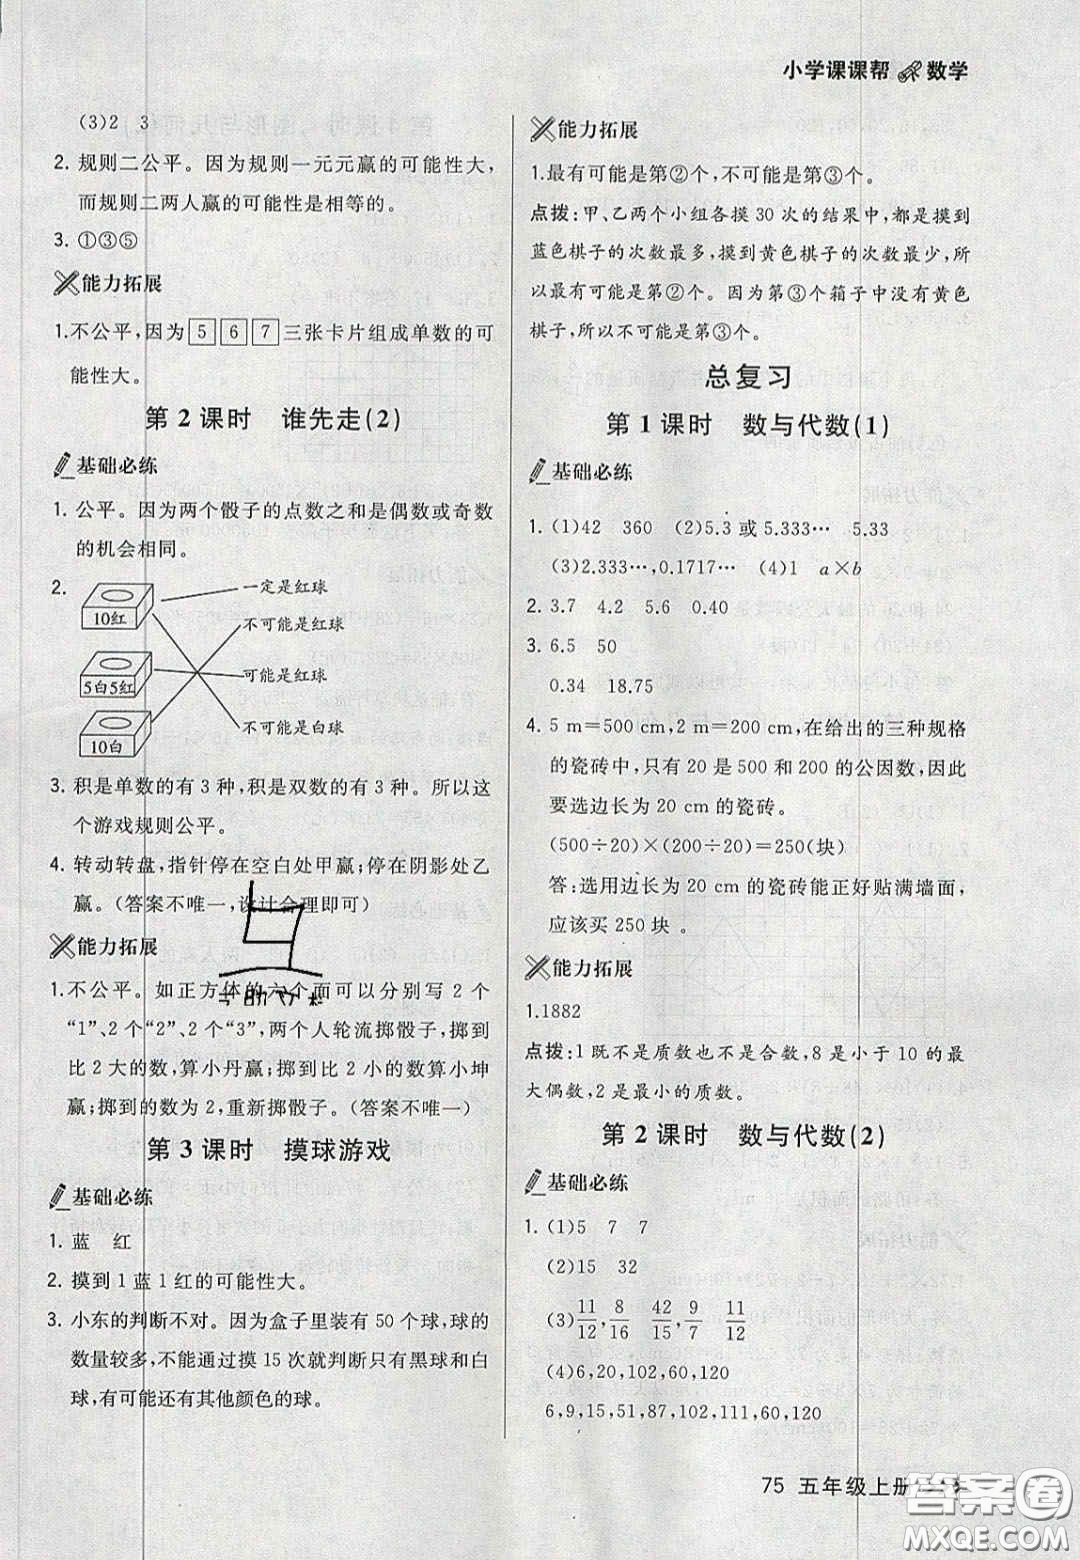 小学课课帮 数学
(3)2 3
2. 规则二公平。因为规则一元元赢的可能性大,
而规则二两人赢的可能性是相等的。
3. ①③⑤
能力拓展
1.不公平,因为 5 6 7 三张卡片组成单数的可
能性大。
第 2 课时 谁先走(2)
基础必练
1. 公平。因为两个骰子的点数之和是偶数或奇数
的机会相同。
2.
10红
5白5红
10白
一定是红球
不可能是红球
可能是红球
不可能是白球
3. 积是单数的有 3 种,积是双数的有 3 种。所以这
个游戏规则公平。
4. 转动转盘,指针停在空白处甲赢;停在阴影处乙
赢。(答案不唯一,设计合理即可)
能力拓展
1.不公平。如正方体的六个面可以分别写 2 个
“1”、2 个“2”、2 个“3”,两个人轮流掷骰子,掷到
比 2 大的数,算小丹赢;掷到比 2 小的数算小坤
赢;掷到的数为 2,重新掷骰子。(答案不唯一)
第 3 课时 摸球游戏
基础必练
1. 蓝 红
2. 摸到 1 蓝 1 红的可能性大。
3. 小东的判断不对。因为盒子里装有 50 个球,球的
数量较多,不能通过摸 15 次就判断只有黑球和白
球,有可能还有其他颜色的球。
能力拓展
1.最有可能是第②个,不可能是第③个。
点拨:甲、乙两个小组各摸 30 次的结果中,都是摸到
蓝色棋子的次数最多,摸到黄色棋子的次数最少,所
以最有可能是第②个。因为第③个箱子中没有黄色
棋子,所以不可能是第③个。
总复习
第 1 课时 数与代数(1)
基础必练
1. (1)42 360 (2)5.3̇ 或 5.333… 5.33
(3)2.333…,0.1717… (4)1 a×b
2. 3.7 4.2 5.6 0.40
3. 6.5 50
0.34 18.75
4. 5 m=500 cm,2 m=200 cm,在给出的三种规格
的瓷砖中,只有 20 是 500 和 200 的公因数,因此
要选边长为 20 cm 的瓷砖。
(500÷20)×(200÷20)=250(块)
答:选用边长为 20 cm 的瓷砖能正好贴满墙面,
应该买 250 块 。
能力拓展
1.1882
点拨:1 既不是质数也不是合数,8 是小于 10 的最
大偶数,2 是最小的质数。
第 2 课时 数与代数(2)
基础必练
1. (1)5 7 7
(2)15 32
(3)11/12,8/16 42/15,9/7 11/12
(4)6,60,87,102,60,120
6,9,15,51,87,102,111,60,120
75 五年级上册
答案圈
MXQE.COM